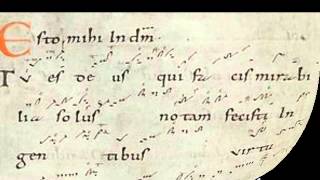 Esto mihi In dm
Tu es de us qui fa cis mirabi
lia solus notam fecisti In
gen tibus virtu